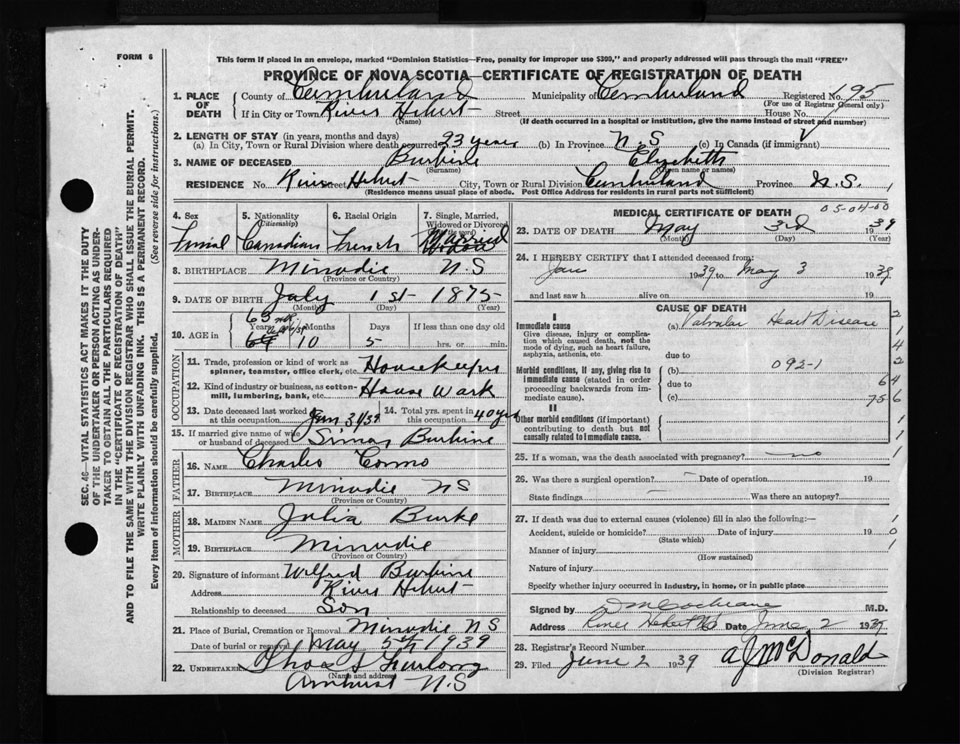 FORM 6
This form if placed in an envelope, marked "Dominion Statistics—Free, penalty for improper use $300," and properly addressed will pass through the mail "FREE"
PROVINCE OF NOVA SCOTIA—CERTIFICATE OF REGISTRATION OF DEATH
1. PLACE OF DEATH County of Cumberland Municipality of Cumberland Registered No. 195
(For use of Registrar General only)
If in City or Town River Hebert Street House No.
(Name) (If death occurred in a hospital or institution, give the name instead of street and number)
2. LENGTH OF STAY (in years, months and days)
(a) In City, Town or Rural Division where death occurred 23 years (b) In Province N.S (c) In Canada (if immigrant)
3. NAME OF DECEASED Burbine Elizabeth
(Surname) (Given name or names)
RESIDENCE No. River Street Hebert City, Town or Rural Division Cumberland Province N.S.
(Residence means usual place of abode. Post Office Address for residents in rural parts not sufficient)
4. Sex 5. Nationality (Citizenship) 6. Racial Origin 7. Single, Married, Widowed or Divorced (write the word)
Femal Canadian French Married
8. BIRTHPLACE Minudie N.S
(Province or Country)
9. DATE OF BIRTH July 1st 1875
(Month) (Day) (Year)
10. AGE in Years Months Days If less than one day old
63 10 5 hrs. or min.
OCCUPATION
11. Trade, profession or kind of work as spinner, teamster, office clerk, etc. Housekeeper
12. Kind of industry or business, as cotton-mill, lumbering, bank, etc. House Wark
13. Date deceased last worked at this occupation Jan 31/39 14. Total yrs. spent in this occupation 40 yrs
15. If married give name of wife or husband of deceased Simon Burbine
FATHER
16. NAME Charles Cormo
17. BIRTHPLACE Minudie NS
(Province or Country)
MOTHER
18. MAIDEN NAME Julia Burke
19. BIRTHPLACE Minudie
(Province or Country)
20. Signature of informant Wilfred Burbine
Address River Hebert
Relationship to deceased Son
21. Place of Burial, Cremation or Removal Minudie NS
Date of burial or removal May 5th 1939
22. UNDERTAKER Thos Furlong
(Name and address)
Amherst N.S
MEDICAL CERTIFICATE OF DEATH 05-04-00
23. DATE OF DEATH May 3rd 1939
(Month) (Day) (Year)
24. I HEREBY CERTIFY that I attended deceased from:
Jan 1939 to May 3 1939
and last saw h alive on 19
CAUSE OF DEATH
I
Immediate cause
Give disease, injury or complication which caused death, not the mode of dying, such as heart failure, asphyxia, asthenia, etc.
(a) Valvular Heart Disease
due to
Morbid conditions, if any, giving rise to immediate cause (stated in order proceeding backwards from immediate cause).
(b) 092-1
due to 64
(c) 756
II
Other morbid conditions (if important) contributing to death but not causally related to immediate cause.
25. If a woman, was the death associated with pregnancy? no
26. Was there a surgical operation? Date of operation 19
State findings Was there an autopsy?
27. If death was due to external causes (violence) fill in also the following:—
Accident, suicide or homicide? Date of injury 19
(State which)
Manner of injury
(How sustained)
Nature of injury
Specify whether injury occurred in industry, in home, or in public place
Signed by D M Cochrane M.D.
Address River Hebert NS Date June 2 1939
28. Registrar's Record Number
29. Filed June 2 1939 A J McDonald
(Division Registrar)
SEC. 46—VITAL STATISTICS ACT MAKES IT THE DUTY
OF THE UNDERTAKER OR PERSON ACTING AS UNDER-
TAKER TO OBTAIN ALL THE PARTICULARS REQUIRED
IN THE "CERTIFICATE OF REGISTRATION OF DEATH"
AND TO FILE THE SAME WITH THE DIVISION REGISTRAR WHO SHALL ISSUE THE BURIAL PERMIT.
WRITE PLAINLY WITH UNFADING INK. THIS IS A PERMANENT RECORD.
Every item of information should be carefully supplied. (See reverse side for instructions.)